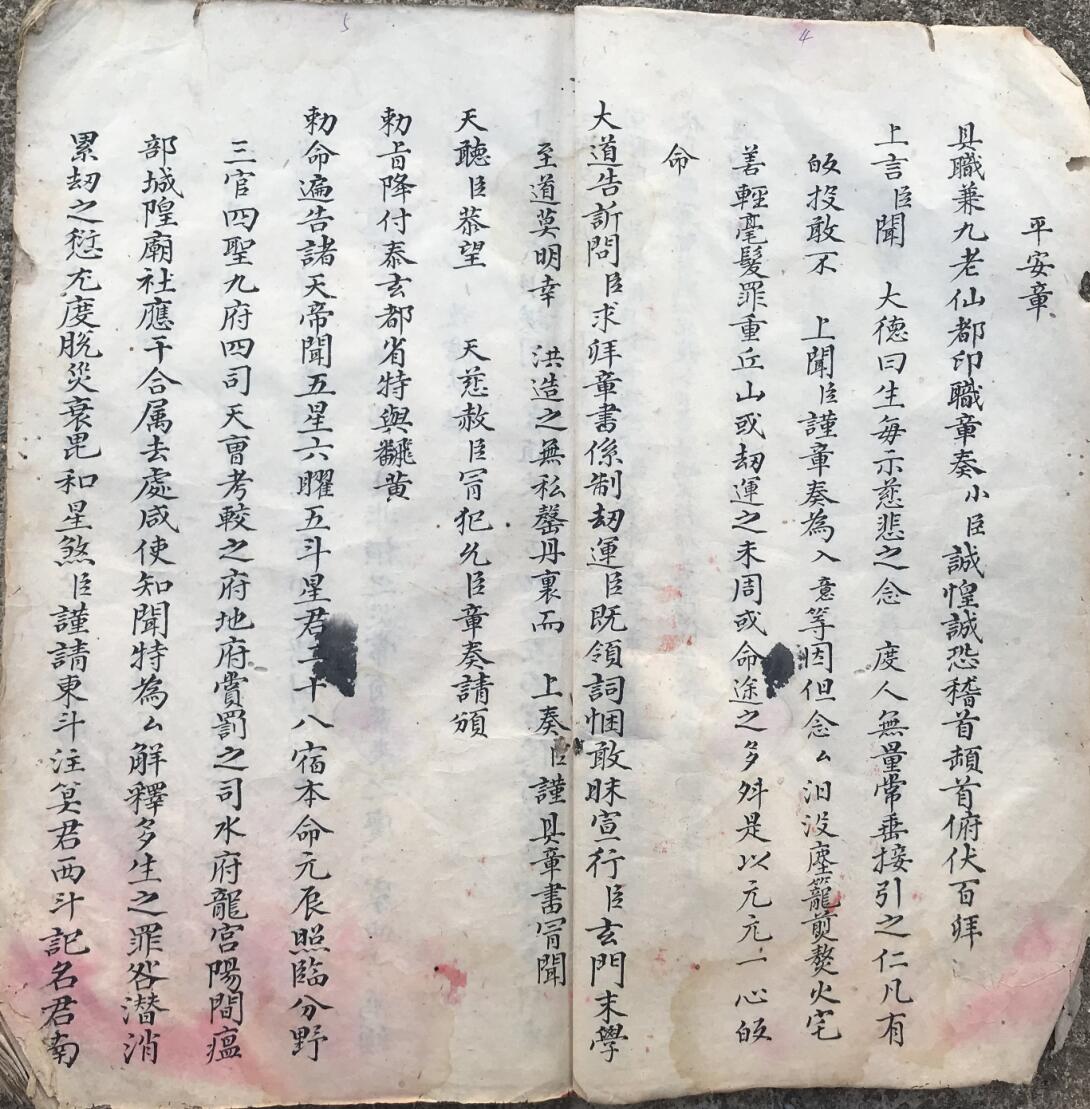 4
平安章
具職兼九老仙都印職章奏小臣誠惶誠恐稽首頓首俯伏百拜
上言臣聞 大德曰生每示慈悲之念 度人無量常垂接引之仁凡有
皈投敢不 上聞臣謹章奏為入意等因但念厶汩沒塵籠煎熬火宅
善輕毫髮罪重丘山或刼運之未周或命途之多舛是以元元一心皈
命
大道告訢問臣求拜章書係制刼運臣既領詞悃敢昧宣行臣玄門末學
至道莫明幸 洪造之無私罄丹衷而 上奏臣謹具章書冐聞
5
天聽臣恭望 天慈赦臣冐犯允臣章奏請頒
勅旨降付泰玄都省特與翻黄
勅命遍告諸天帝聞五星六曜五斗星君二十八宿本命元辰照臨分野
三官四聖九府四司天曹考較之府地府賞罰之司水府龍宮陽間瘟
部城隍廟社應干合属去處咸使知聞特為厶解釋多生之罪咎潜消
累刼之愆尤度脱災衰毘和星煞臣謹請東斗注筭君西斗記名君南